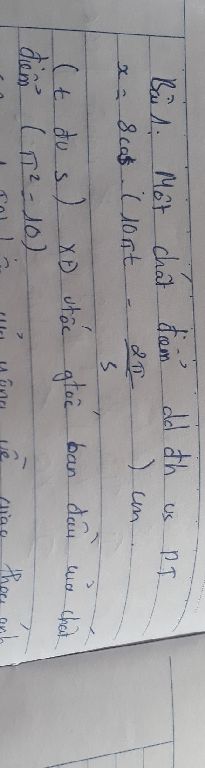 Bài 1. Một chất điểm dđ đh vs PT
x = 8cos (10πt - 2π/5) cm.
(t đo s) XĐ vtốc gtốc ban đầu của chất
điểm (π² = 10)